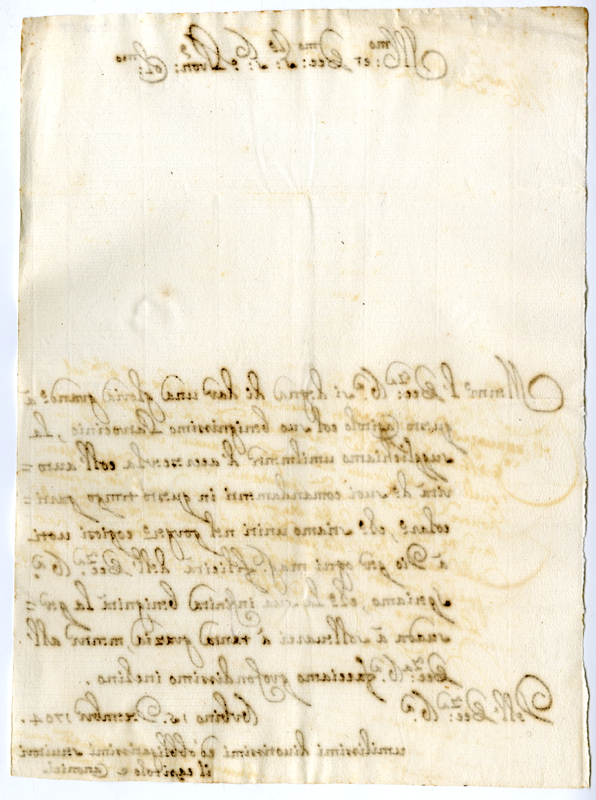 Ill:mo et Ecc:mo S:r S:r e P'ron: Col:mo
Mentre l'Ecc:za V'ra si degna di dar una gloria grande à
questo Capitolo col suo benignissimo Patrocinio, La
supplichiamo umilmente d'accrescerla coll'auto=
rità de suoi comandamenti in questo tempo parti=
colare, che stiamo uniti nel porgere copiosi voti
à Dio per ogni magg: felicità dell'Ecc:za V'ra
speriamo, che la sua infinita benignità la per=
suada à sollevarci à tanta grazia mentre all'
Ecc:za V'ra facciamo profondissimo inchino.
Dell'Ecc:za V'ra Urbino 15. Dicembre 1704.
umilissimi divotissimi ed obbligatissimi servitori
il capitolo e Canonici